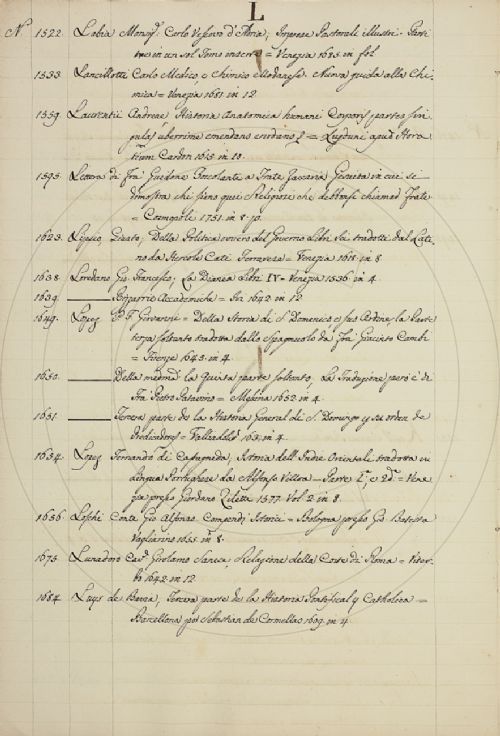 L
N° 1522. Labia Monsig.r Carlo Vescovo d'Adria, Imprese Pastorali illustri. Parti
tre in un sol Tomo inserte = Venezia 1685. in fol
1533. Lancillotti Carlo Medico e Chimico Modanese. Nuova guida alla Chi-
mica = Venezia 1681. in 12
1559. Laurentii Andreae Historia Anatomica humani Corporis partes sin-
gulas uberrime enodans = Lugduni apud Hora-
tium Cardon 1615. in 10.
1595. Lettera di Frà Guidone Zoccolante a Frate Zaccaria Gesuita in cui si
dimostra chi sieno quei Religiosi che debbonsi chiamar Frate
= Cosmopoli 1751. in 8.
1623. Lipsio Giusto, Della Politica ovvero del Governo Libri Sei tradotti dal Lati-
no da Hercole Cati Ferrarese = Venezia 1618. in 8
1638. Loredano Gio. Francesco, La Dianea Libri IV = Venezia 1536. in 4.
1639. ——— Bizzarrie Accademiche = In 1642. in 12
1649. Lopez P. F. Giovanni = Della Storia di S. Domenico e suo Ordine, la Parte
terza soltanto tradotta dallo Spagnuolo da Frà Giacinto Cambi
= Firenze 1645. in 4.
1650. ——— Della medma la Quinta parte soltanto, La Traduzione però è di
Frà Pietro Patavino = Messina 1652. in 4.
1651. ——— Tercera parte de la Historia General di S. Domingo y su orden de
Predicadores = Valladolid 163. in 4.
1654. Lopez Fernando di Castagneda, Istoria dell'Indie Orientali tradotta in
lingua Portughese da Alfonso Ulloa = Parte I.a e 2.da = Vene-
zia presso Giordano Ziletti 1577. Vol. 2. in 8.
1656. Loschi Conte Gio Alfonso Compendj Istorici = Bologna presso Gio Batista
Vaglierino 1655. in 8.
1675. Lunadoro Cav.r Girolamo Sanese, Relazione della Corte di Roma = Viter-
bo 1642. in 12
1684. Luys de Bavia, Tercera parte de la Historia Pontifical y Catholica =
Barcellona por Sebastian de Cormellas 1609. in 4